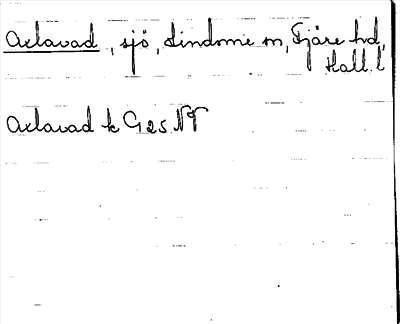 Axlavad, sjö, Lindome sn, Fjäre hd,
Hall. l
Axlavad k G25 NV